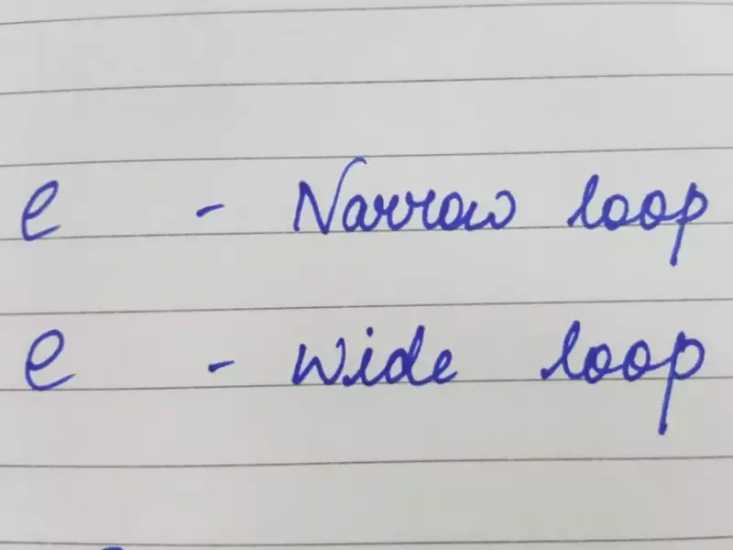 e - Narrow loop
e - wide loop